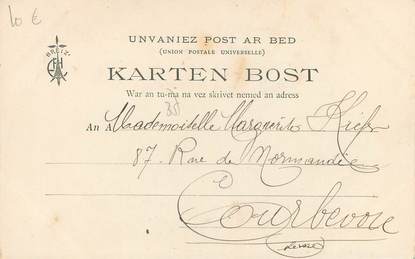 10 €
UNVANIEZ POST AR BED
(UNION POSTALE UNIVERSELLE)
BREIZ
KARTEN BOST
War an tu-ma na vez skrivet nemed an adress
An A Mademoiselle Marguerite Kief
87. Rue de Normandie
Courbevoie